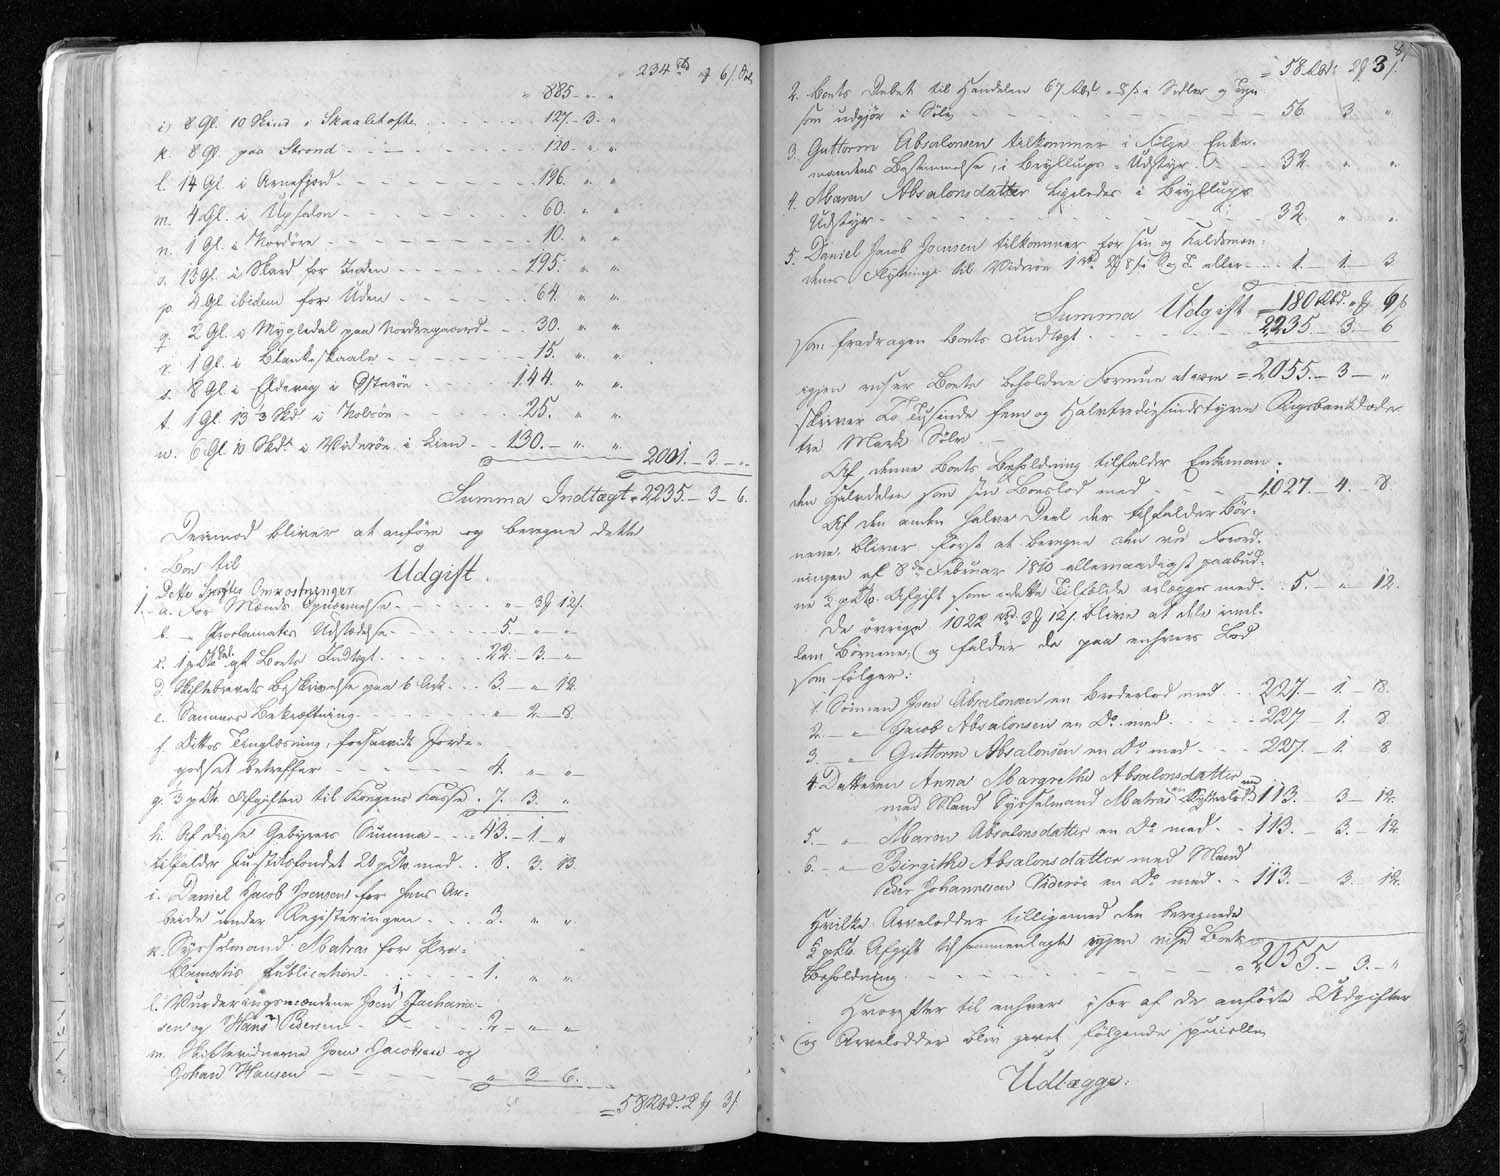 234 rbd „ ƒ 6 ß.
885 „ „
i) 8 Gl. 10 Skind i Skaaletofte 127. 3. „
k. 8 Gl. paa Strond 120. „ „
l. 14 Gl. i Arnefjord 196. „ „
m. 4 Gl. i Upsalon 60. „ „
n. 1 Gl. i Nordöre 10. „ „
o. 13 Gl. i Skard for Inden 195. „ „
p 4 Gl. ibidem for Uden 64. „ „
q. 2 Gl. i Mygledal paa Nordregaard 30. „ „
r. 1 Gl. i Blankeskaale 15. „ „
s. 8 Gl. i Eldevig i Österöe 144. „ „
t. 1 Gl. 13 3 Skd i 25. „ „
u. 6 Gl. 10 Skd. i Videröe i Lien 130. „ „
2001. – 3. – „
Summa Indtægt = 2235. – 3 – 6.
Derimod bliver at anföre og beregne dette
Boe til
Udgift.
1. Dette Skiftes Omkostninger
a. For Mænds Opnævnelse „ 3ƒ 12 ß.
b. – Proclamatis Udstædelse 5. – „ – „
c. 1 pCto. af Boets Indtægt 22. – 3. – „
d. Skiftebrevets Beskrivelse paa 6 Ark 3. – „ 12.
e. Sammes Bekræftning „ – 2 – 8.
f. Dittos Tinglæsning, forsaavidt Jorde-
godset betreffer 4. „ „
g. ⅓ pCto. Afgiften til Kongens Kasse 7. 3. „
h. Af disse Gebyrers Summa 43. – 1. „
tilfalder Justitsfondet 20 pCto. med 8. 3. 13.
i. Daniel Jacob Joensen for hans Ar-
beide under Registeringen 3. „ „
k. Sysselmand Matras for Pro-
klamatis Publication 1. „ „
l. Vurderingsmændene Joen Zacharia-
sen og Hans Pedersen 2 – „ – „
m. Skiftevidnerne Joen Jacobsen og
Johan Hansen „ 3 – 6.
= 58 Rbd. 2 ƒ 3 ß.
= 58 Rbd. 2ƒ 3 ß.
2. Boets Debet til Handelen 67 Rbd. „ 8 ß i Sedler og Tegn
som udgjör i Sölv 56. 3. „
3. Guttorm Absalonsen tilkommer i Fölge Enke-
mandens Bestemmelse, i Bryllups-Udstyr 32. „ „
4. Maren Absalonsdatter ligeledes i Bryllups
Udstyr 32. „ „
5. Daniel Jacob Joensen tilkommer for sin og Kaldsmæn-
denes Flytning til Videröe 1 rbd 2ƒ 8 ß i S. og T. eller 1. 1. 3
Summa Udgift = 180 Rbd. „ ƒ 6 ß
som fradragen Boets Indtægt 2235 – 3 – 6
igjen viser Boets beholdne Formue at være = 2055. – 3 – „
skriver To Tusinde fem og Halvtredsindstyve Rigsbankdaler
tre Mark Sölv. –
Af denne Boets Beholdning tilfalder Enkeman-
den Halvdelen som sin Boeslod med 1027. – 4. – 8.
Af den anden halve Deel der tilfalder Bör-
nene, bliver först at beregne den ved Forord-
ningen af 8de Februar 1810 allernaadigst paabud-
ne ½ pCto. Afgift som i dette Tilfælde erlægges med 5. – „ – 12.
De övrige 1022 rbd 3ƒ 12 ß blive at dele imel-
lem Börnene, og falder da paa enhvers Lod
som fölger:
1. Sönnen Joen Absalonsen en Broderlod med 227. – 1. – 8.
2. – „ – Jacob Absalonsen en Do. med 227 – 1. 8
3. – „ – Guttorm Absalonsen en Do med 227. – 1. 8
4. Datteren Anna Margrethe Absalonsdatter
med Mand Sysselmand Matras en Systerlod med 113. – 3 – 12.
5. – „ – Maren Absalonsdatter en Do med 113. – 3. – 12.
6. – „ – Birgithe Absalonsdatter med Mand
Peder Johannesen Videröe en Do med 113. – 3. – 12.
Hvilke Arvelodder tilligemed den beregnede
½ pCto. Afgift tilsammenlagte igjen viser Boets
Beholdning = 2055. – 3. – „
Hvorefter til enhver især af de anförte Udgifter
og Arvelodder blev gjort fölgende specielle
Udlægge: